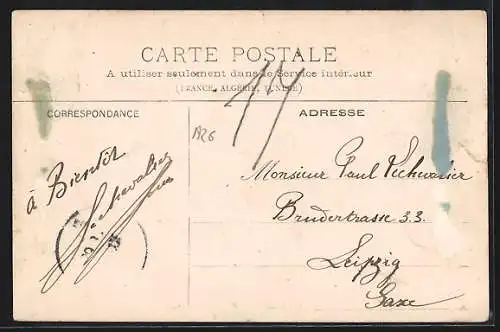 CARTE POSTALE
A utiliser seulement dans le Service intérieur
(FRANCE, ALGÉRIE, TUNISIE)
CORRESPONDANCE
ADRESSE
1926
à Bientôt
Chevalier
Monsieur Paul Lechevalier
Brudertrasse 33.
Leipzig
Saxe